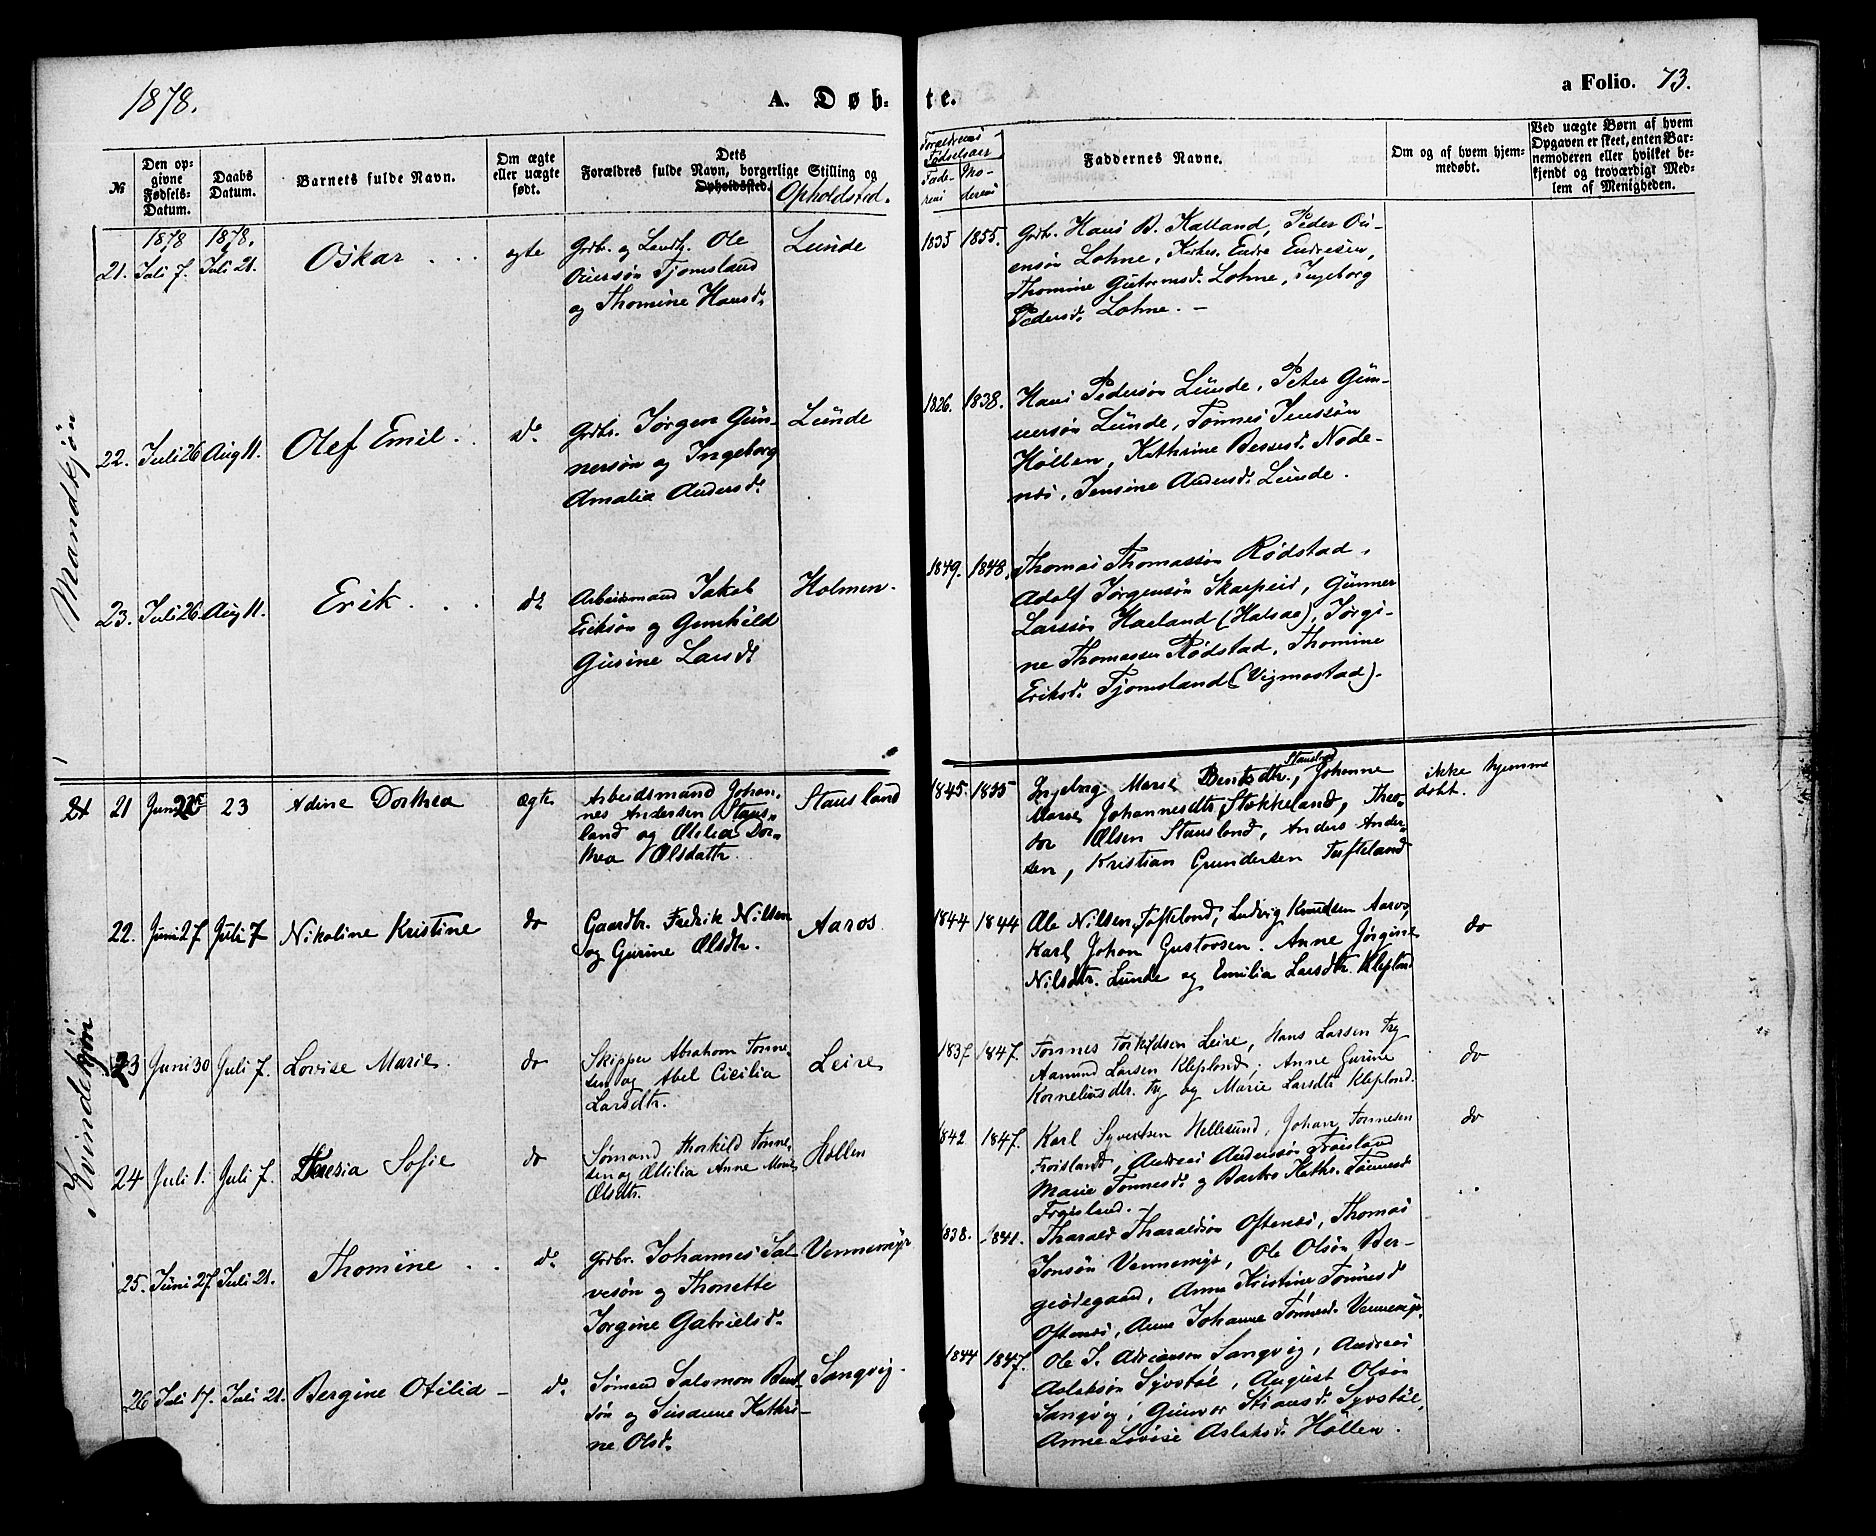 1878.
A. Døb-
te.
a Folio. 73.
№
Den op-
givne
Fødsels-
Datum.
Daabs
Datum.
Barnets fulde Navn.
Om ægte
eller uægte
født.
Dets
Forældres fulde Navn, borgerlige Stilling og
Opholdssted.
Opholdsted.
Forældrenes
Fødselsaar
Fade-
rens
Mo-
derens
Faddernes Navne.
Om og af hvem hjem-
medøbt.
Ved uægte Børn af hvem
Opgaven er skeet, enten Bar-
nemoderen eller hvilket be-
kjendt og troværdigt Med-
lem af Menigheden.
Mandkjøn
1878 1878.
21. Juli 7. Juli 21. Oskar egte
Grdb. og Landh. Ole
Oiersøn Tjomsland
og Thomine Hansd.
Lunde
1835 1855.
Grdb. Hans B. Kalland, Peder Oi-
ensøn Lohne, Kirkes. Endre Endresen,
Thomine Guttormsd. Lohne, Ingeborg
Pedersd. Lohne. —
22. Juli 26 Aug 11. Olef Emil. d.
Grdbr. Jørgen Gun-
nersøn og Ingeborg
Amalia Andersd.
Lunde
1826. 1838.
Hans Pedersøn Lunde, Peter Gun-
nersøn Lunde, Tønnes Jenssøn
Høllen, Kathrine Bessesd. Node-
næs, Jensine Andersd. Lunde.
23. Juli 26 Aug 11. Erik. d.
Arbeidsmand Jakob
Eriksøn og Gunhild
Gusine Larsd.
Holmen.
1849. 1848.
Thomas Thomassøn Rødstad,
Adolf Jørgensøn Skarpeid, Gunner
Larssøn Haeland (Halsaa), Jørgi-
ne Thomassen Rødstad, Thomine
Eriksd. Tjomsland (Vigmostad).
Kvindekjøn
21 21 Juni 22 23 Adine Dorthea ægte
Arbeidsmand Johan-
nes Andersen Staus-
land og Otilia Dor-
thea Olsdattr.
Stausland
1845. 1855
Stausland
Ingebrg Marie Bentsdtr., Johanne
Marie Johannesdtr Stokkeland, Theo-
dor Olsen Stausland, Anders Ander-
sen, Kristian Gundersen Tufteland
ikke hjemme
døbt.
22. Juni 27 Juli 7 Nikoline Kristine do
Gaardbr. Fredrik Nilsen
og Gurine Olsdtr.
Aaros
1844 1844
Ole Nilsen Tofteland, Ludvig Knudsen Aaros,
Karl Johan Gustavsen. Anne Jørgine
Nilsdtr. Lunde og Emilia Larsdtr. Klepland
do
23 Juni 30 Juli 7. Lovise Marie. do
Skipper Abraham Tønne-
sen og Abel Cicilia
Larsdtr.
Leire
1837. 1847.
Tønnes Torkildsen Leire, Hans Larsen Try
Aanund Larsen Klepland, Anne Gurine
Korneliusdtr. Try og Marie Larsdtr Klepland.
do
24 Juli 1. Juli 7. Theresia Sofie do
Sømand Thorkild Tønne-
sen og Ottilia Anne Marie
Olsdtr.
Høllen
1842 1847.
Karl Syvertsen Hellesund, Johan Tønnesen
Frøisland, Andreas Andersøn Frøisland
Marie Tønnesd. og Kathr. Tønnesd.
Frøisland.—
do
25. Juni 27. Juli 21. Thomine d.
Grdbr. Johannes Sal-
vesøn og Thonette
Jørgine Gabrielsd.
Vennemyr
1838. 1841.
Tharald Tharaldsøn Oftenes, Thomas
Jonsøn Vennemyr, Ole Olsøn Ber-
geødegaard, Anne Kristine Tønnesd
Oftenes, Anne Johanne Tønnesd. Vennemyr.
26 Juli 17. Juli 21. Bergine Otilia — d.
Sømand Salomon Bent-
søn og Susanne Kathri-
ne Olsd.
Sangvig.
1844 1847.
Ole S. Adriansen Sangvig, Andreas
Aslaksøn Syvstøl, August Olsøn
Sangvig, Gunvor Stiansd. Syvstøl,
Anne Lovise Aslaksd. Høllen.